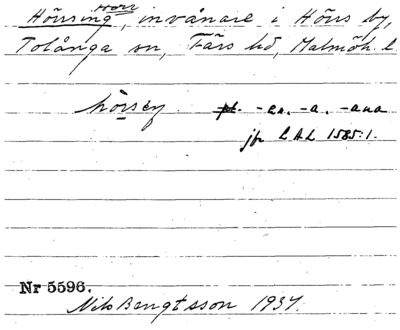 Hörsing, invånare i Hörrs by,
Tolånga sn, Färs hd, Malmöh. l.
hörseŋ pl. -an. -a. -ana
jfr LAL 1585:1.
Nr 5596.
Nils Bengtsson 1937.